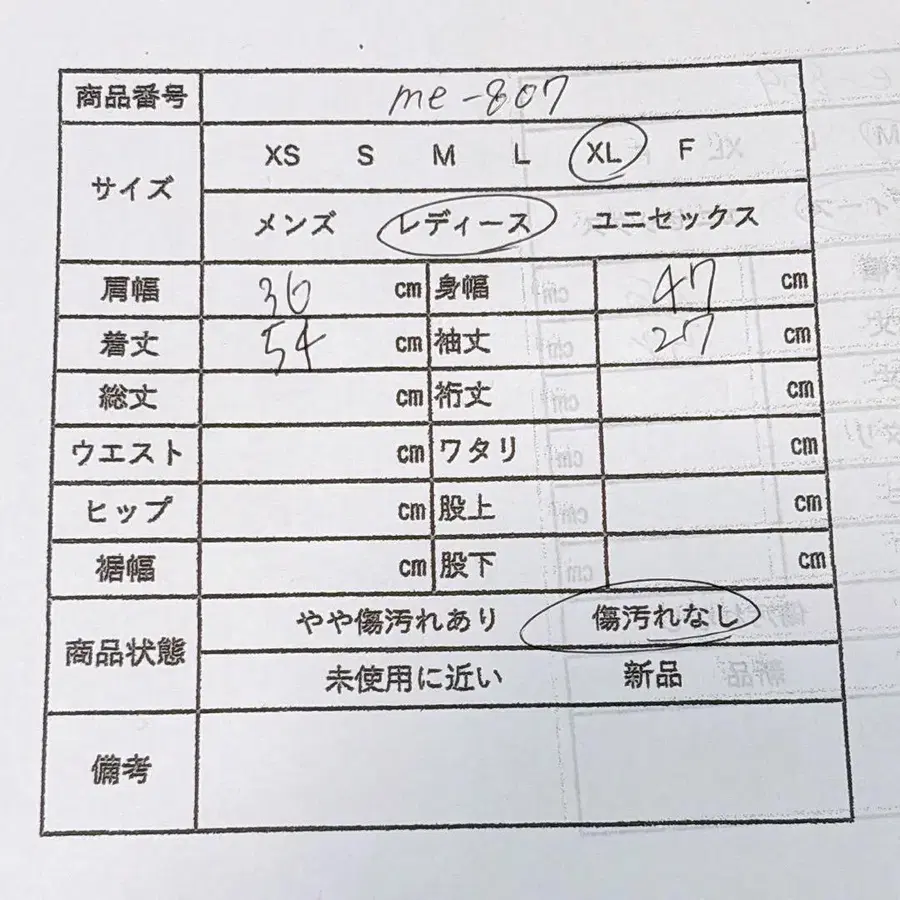 商品番号 me-807
サイズ XS S M L XL F
メンズ レディース ユニセックス
肩幅 36 cm 身幅 47 cm
着丈 54 cm 袖丈 27 cm
総丈 cm 裄丈 cm
ウエスト cm ワタリ cm
ヒップ cm 股上 cm
裾幅 cm 股下 cm
商品状態 やや傷汚れあり 傷汚れなし
未使用に近い 新品
備考